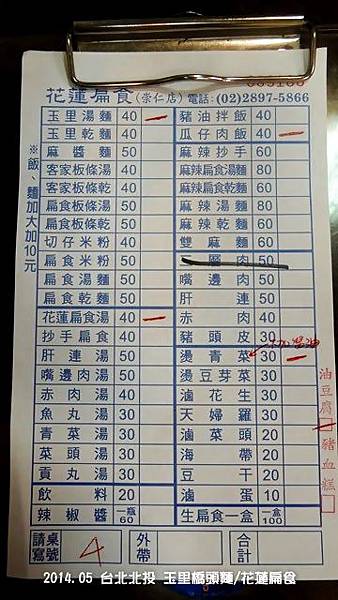 花蓮扁食(崇仁店)電話:(02)2897-5866
※飯、麵加大加10元
玉里湯麵 40
玉里乾麵 40
麻醬麵 50
客家板條湯 50
客家板條乾 50
扁食板條湯 50
扁食板條乾 50
切仔米粉 40
扁食米粉 50
扁食湯麵 50
扁食乾麵 50
花蓮扁食湯 40
抄手扁食 40
肝連湯 50
嘴邊肉湯 50
赤肉湯 40
魚丸湯 30
青菜湯 30
菜頭湯 30
貢丸湯 30
飲料 20
辣椒醬 一瓶60
豬油拌飯 40
瓜仔肉飯 40
麻辣抄手 60
麻辣扁食湯麵 80
麻辣扁食乾麵 80
麻辣湯麵 80
麻辣乾麵 60
雙麻麵 60
肉 50
嘴邊肉 50
肝連 50
赤肉 40
豬頭皮 30
燙青菜 30
燙豆芽菜 30
滷花生 30
天婦羅 30
滷菜頭 20
海帶 20
豆干 20
滷蛋 10
生扁食一盒 一盒100
油豆腐
豬血糕
請寫桌號 4
外帶
合計
2014.05 台北北投 玉里橋頭麵/花蓮扁食